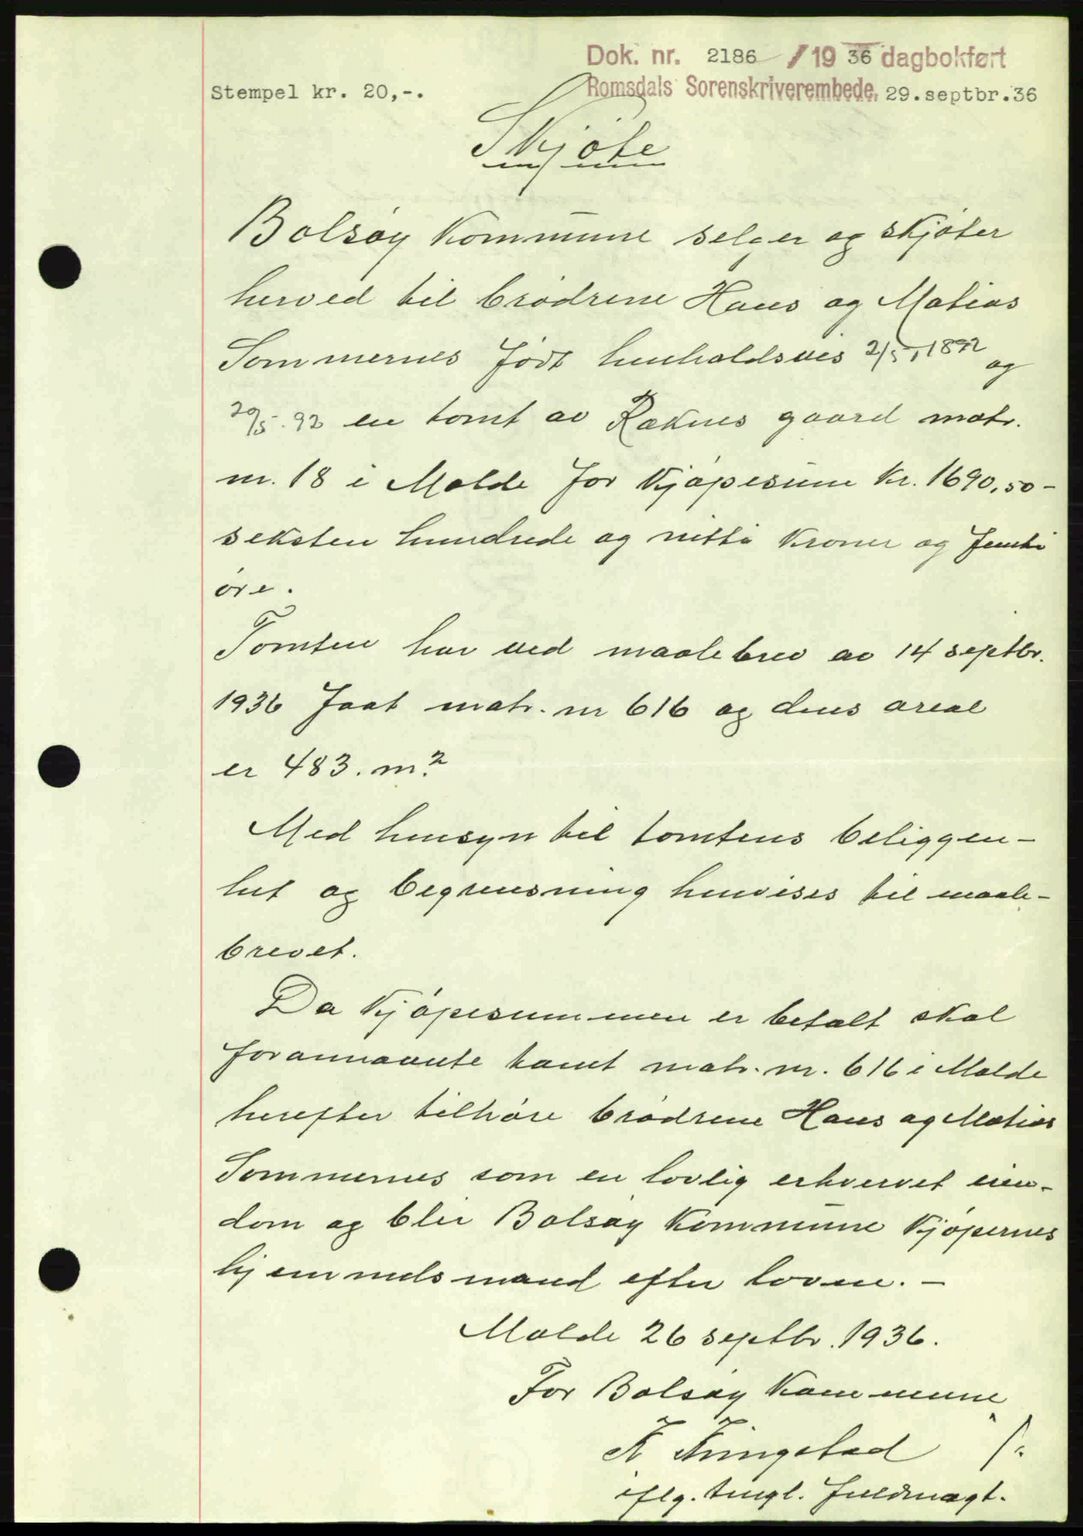 Dok. nr. 2186 /19 36 dagbokført
Stempel kr. 20,-. Romsdals Sorenskriverembede, 29.septbr.36
Skjøte
Bolsøy kommune selger og skjøter
herved til brødrene Hans og Matias
Sommernes født henholdsvis 2/5, 1892 og
29/5. 92 en tomt av Røknes gaard matr.
nr. 18 i Molde for kjøpesum kr. 1690,50 -
seksten hundrede og nitti kroner og femti
øre.
Tomten har ved maalebrev av 14 septbr.
1936 faat matr. nr 616 og dens areal
er 483. m.2
Med hensyn til tomtens beliggen-
het og begrensning henvises til maale-
brevet.
Da kjøpesummen er betalt skal
forannævnte tomt matr. nr. 616 i Molde
herefter tilhøre brødrene Hans og Matias
Sommernes som en lovlig erhvervet eien-
dom og blir Bolsøy kommune kjøpernes
hjemmelsmand efter loven. -
Molde 26 septbr. 1936.
For Bolsøy kommune
iflg. tingl. fuldmagt.